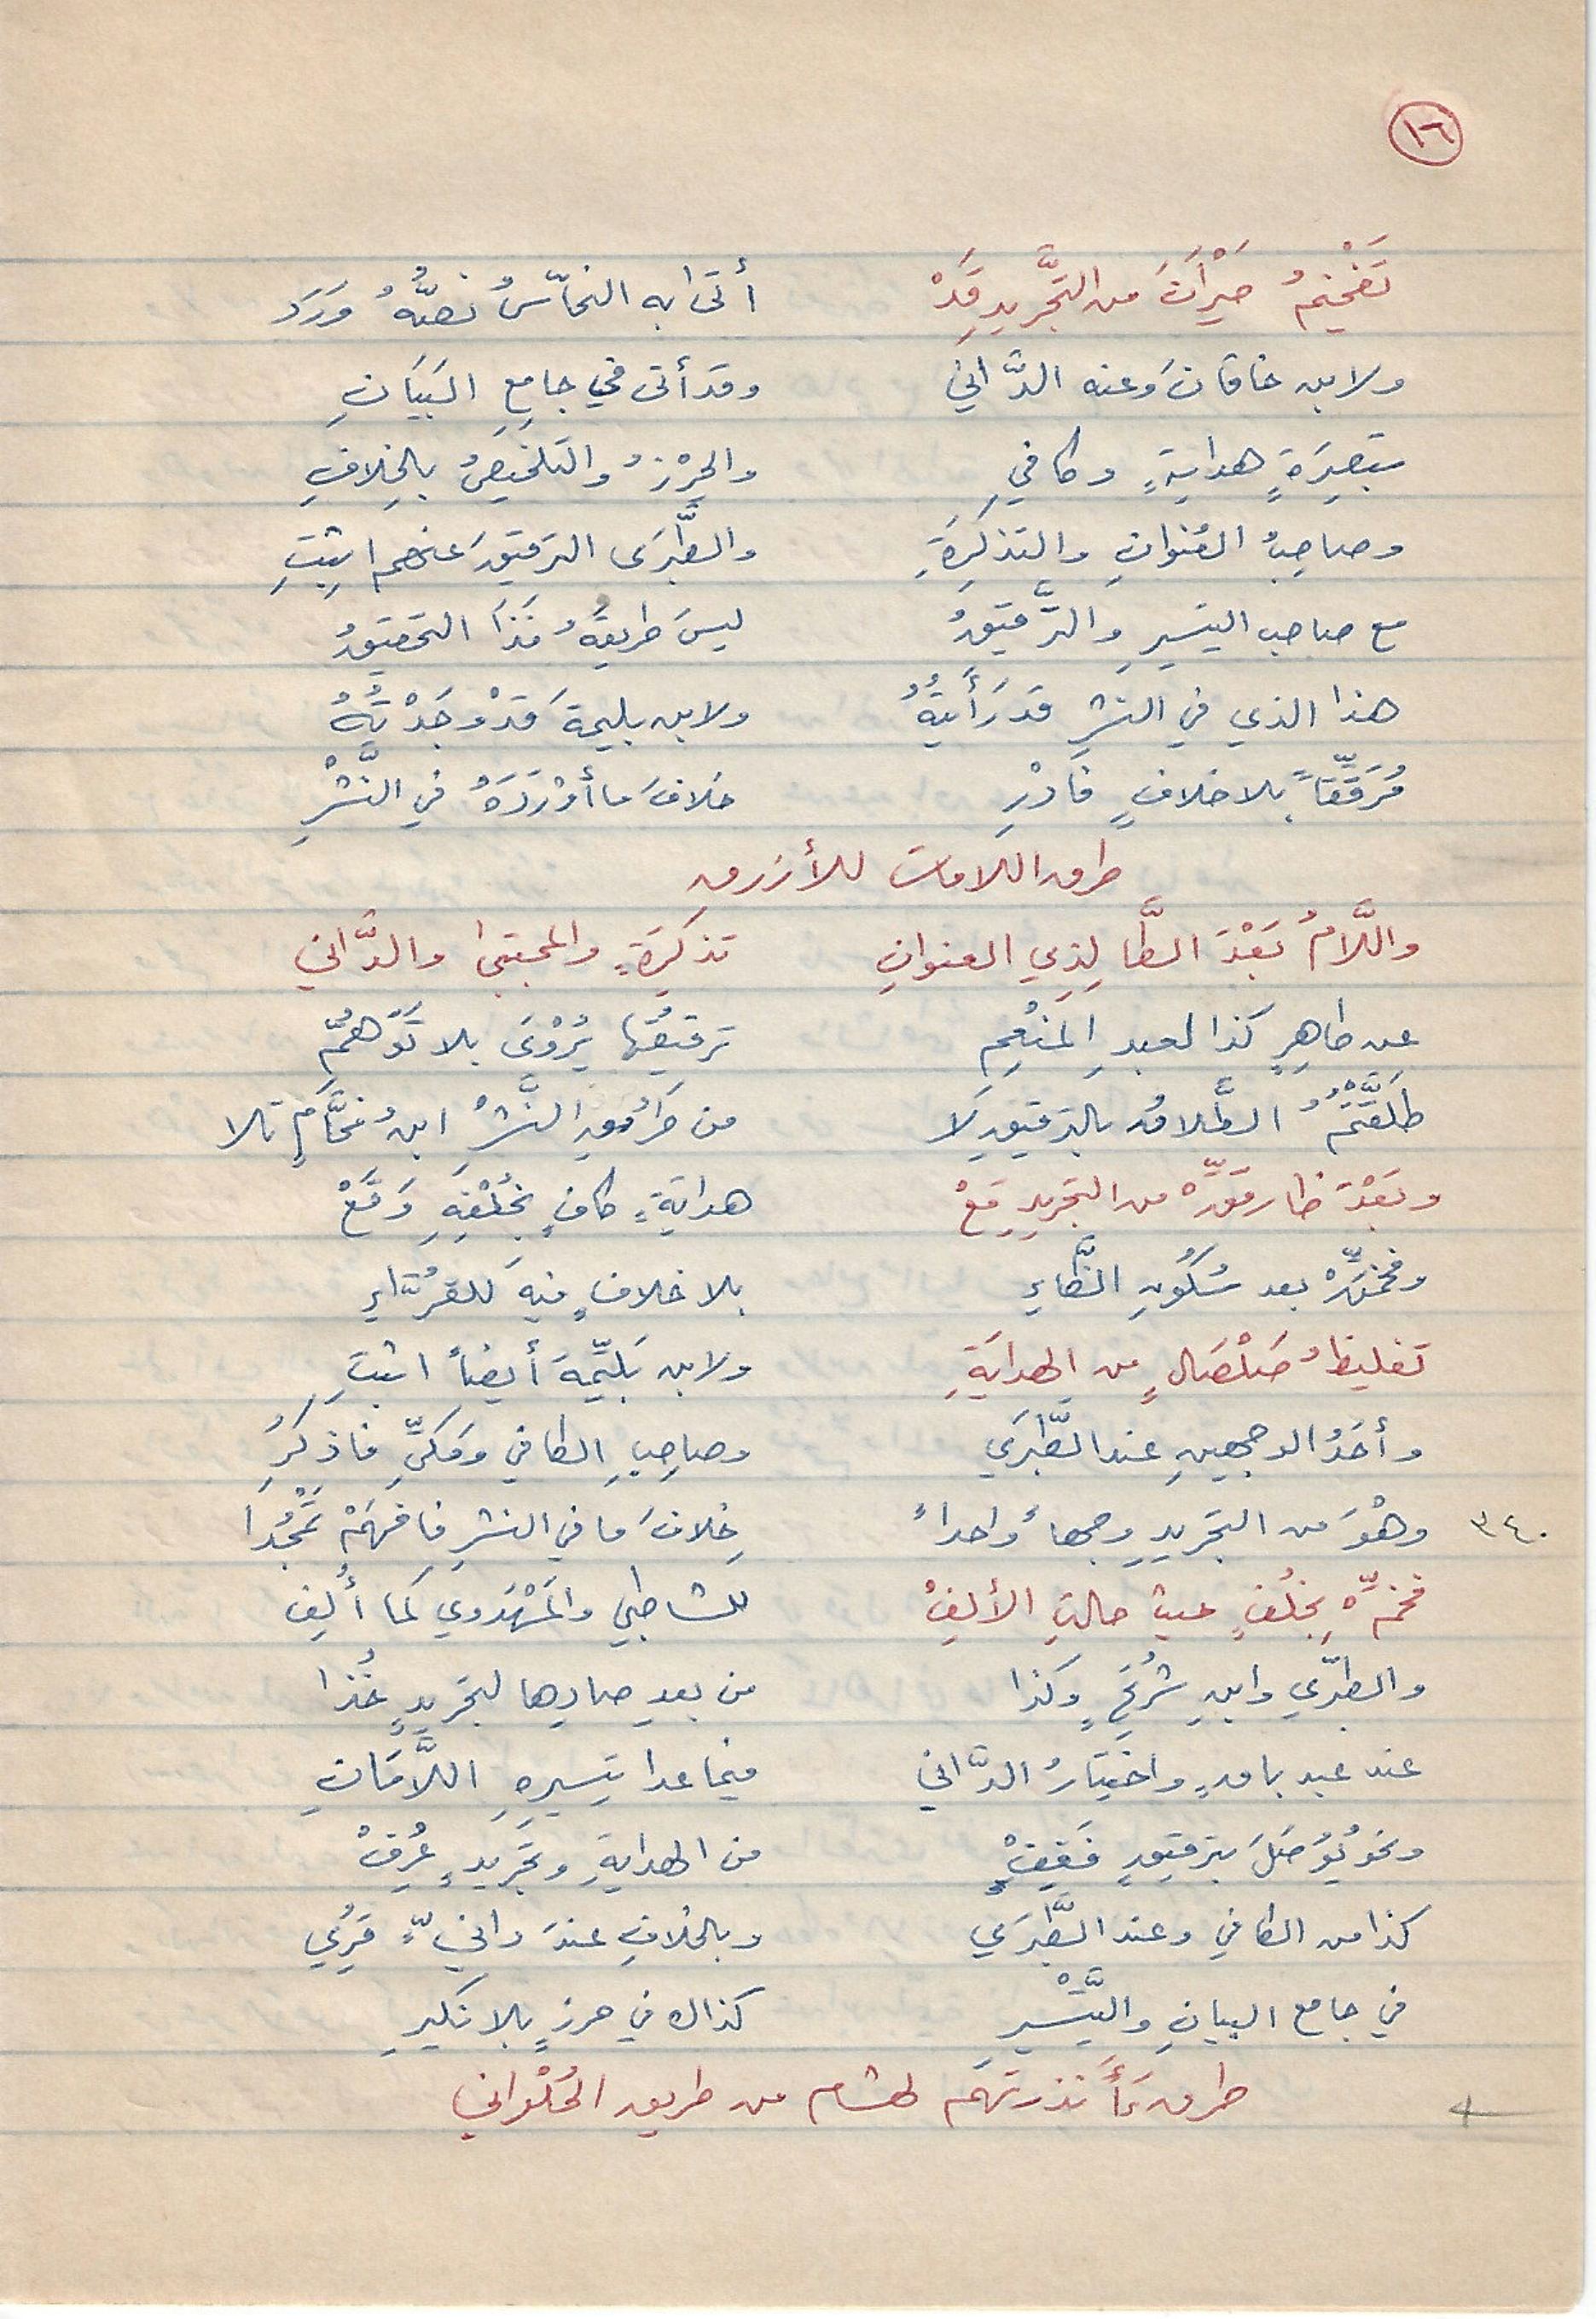 ١٦
تَفْخِيمُ حَيْرَانَ من التَّجْريدِ قَدْ أتى به النحّاسُ نصُّهُ وَرَدَ
ولابن خاقانَ وعنه الدَّاني وقد أتى في جامِعِ البَيَانِ
تبصِرَةٍ هدايةٍ وكافي والحِرْزُ والتلخيصُ بالخِلافِ
وصاحِبُ العُنوانِ والتذكِرَةِ والطَّبَرَى الترقيقَ عنهم اثبِتِ
مع صاحب التيسيرِ والتَّرقيقُ ليسَ طريقَهُ فَذَا التحقيقُ
هذا الذي في النشرِ قد رَأَيتُهُ ولابن بليمةَ قَدْ وَجَدْتُهُ
مُرَقِّقَاً بلا خلافٍ فَادْرِ خلافَ ما أَوْرَدَهُ في النَّشْرِ
طرق اللامات للأزرق
واللَّامُ بَعْدَ الطَّا لِذِي العنوانِ تذكِرَةٍ والمجتبى والدَّاني
عن طاهِرٍ كذا لعبدِ المنْعِمِ ترقيقُها يُرْوَى بلا تَوَهُّمِ
طَلَّقْتُمُ الطَّلاقُ بالترقيقِ لَا من طُرُقِ النَّشْرِ ابنُ فحَّامٍ تلا
وبَعْدَ ظا رقِّقْهُ من التجريدِ مَعْ هدايَةٍ كافٍ بِخُلْفِهِ وَقَعْ
وفخِّمَنْهُ بعد سُكُونِ الظَّاءِ بلا خلافٍ فيهَ للقرَّاءِ
تغليظُ صَلْصَالٍ من الهدايَةِ ولابن بَلِّيمَةَ أيضاً اثبتِ
وأحَدُ الوجهينِ عند الطَّبَرَي وصاحِبِ الكافي ومَكيِّ فاذكُرِ
٣٤٠ وهْوَ من التجريدِ وجهاً واحداً خِلافَ ما في النشرِ فافهَمْ تَمْجُدا
فخِّمْهُ بِخُلْفٍ حيث حالتِ الألِفْ للشاطبي والمَهْدَوي كما أُلِفْ
والطبَّري وابنِ شُرَيْحٍ وكذا من بعدِ صادِها لتجريدٍ خُذا
عند عبد باقٍ واختِيَارُ الدَّاني فيما عدا تيسيرِهِ اللَّامَانِ
ونحوُ يُوصَلَ بترقيقٍ فَقِفْ من الهدايةِ وتجَريدٍ عُرِفْ
كذا من الكافي وعند الطَّبَرَي وبالخلافِ عندَ دانيٍّ قُرِي
في جامع البيانِ والتَّيْسيرِ كذاك في حرزٍ بلا نكيرِ
طرق ءَأَنذرتَهم لهشام من طريق الحُلْواني